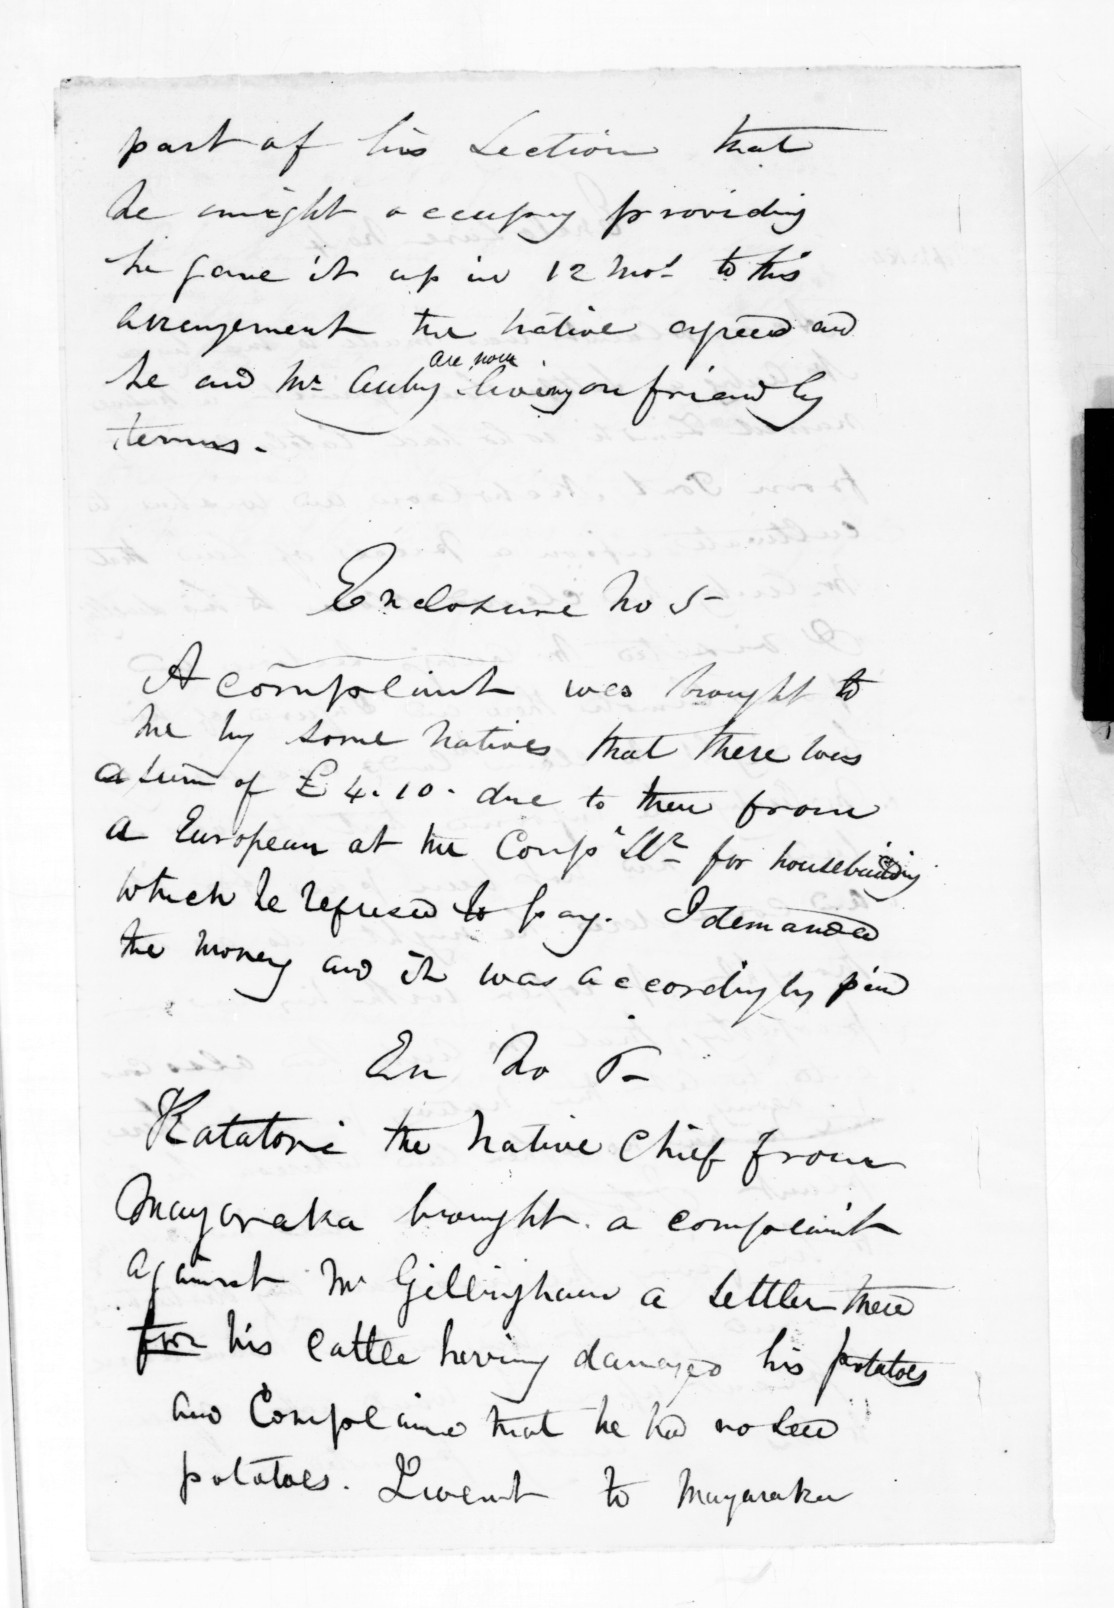 part of his Section that
he might occupy providing
he gave it up in 12 Mos to this
arrangement the Native agreed and
he and Mr are now living on friendly
terms.
Enclosure No 5
A complaint was brought to
me by some Natives that there was
a sum of £4.10. due to them from
a European at the Comps Str for housebuilding
which he refused to pay. I demanded
the money and it was accordingly paid
En No
Katatori the Native Chief from
Mayaraka brought a complaint
against Mr Gillingham a Settler there
for his Cattle having damaged his potatoes
and Complained that he had no seed
potatoes. I went to Mayaraka